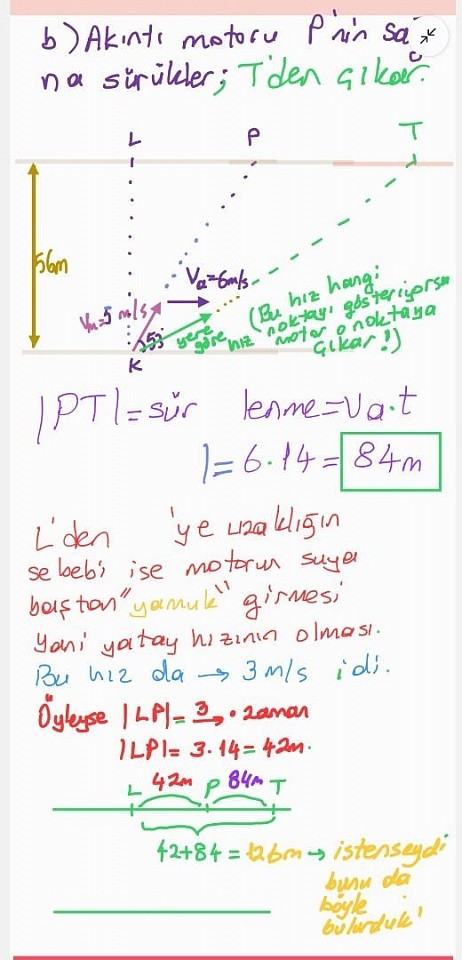 b) Akıntı motoru P'nin sağı
na sürükler; T'den çıkar.
L P T
56m
Va=6m/s
Vm=5 m/s
53°
K
yere göre hız
(Bu hız hangi
noktayı gösteriyorsa
motor o noktaya
çıkar!)
|PT|= sür lenme=Va.t
|= 6.14= 84m
L'den 'ye uzaklığın
sebebi ise motorun suya
baştan "yamuk" girmesi
yani yatay hızının olması.
Bu hız da → 3 m/s idi.
Öyleyse |LP|= 3 . zaman
|LP|= 3.14= 42m.
L 42m P 84m T
42+84 = 126m → istenseydi
bunu da
böyle
bulurduk!